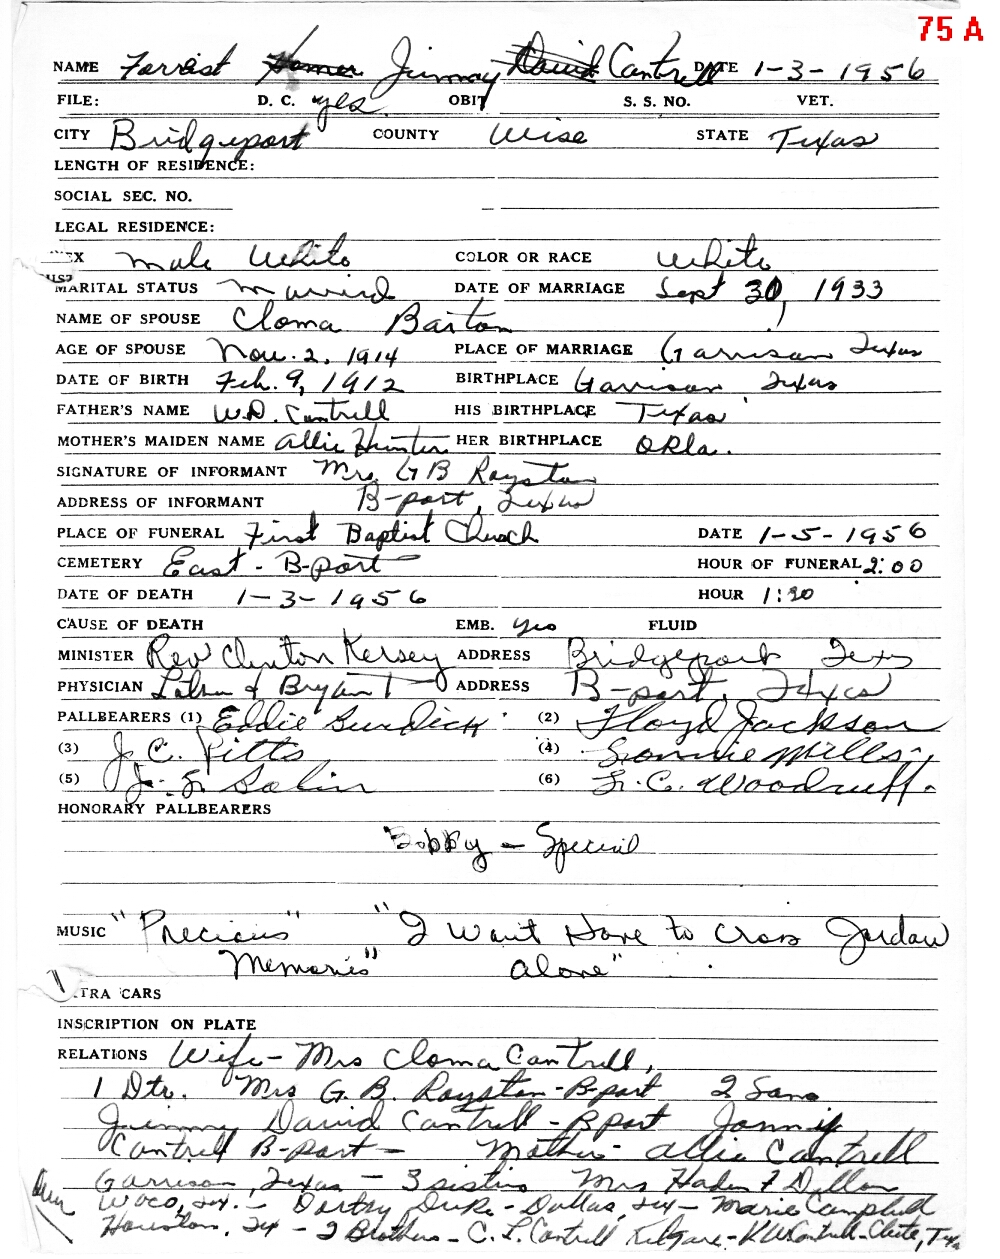 75 A
NAME Forrest Homer Jimmy David Cantrell DATE 1-3-1956
FILE: D. C. yes OBIT S. S. NO. VET.
CITY Bridgeport COUNTY Wise STATE Texas
LENGTH OF RESIDENCE:
SOCIAL SEC. NO.
LEGAL RESIDENCE:
SEX Male White COLOR OR RACE White
MARITAL STATUS Married DATE OF MARRIAGE Sept 30, 1933
NAME OF SPOUSE Cloma Barton
AGE OF SPOUSE Nov. 2, 1914 PLACE OF MARRIAGE Garrison Texas
DATE OF BIRTH Feb. 9, 1912 BIRTHPLACE Garrison Texas
FATHER'S NAME W.D. Cantrell HIS BIRTHPLACE Texas
MOTHER'S MAIDEN NAME Allie Hunter HER BIRTHPLACE Okla.
SIGNATURE OF INFORMANT Mrs G B Royston
ADDRESS OF INFORMANT B-port, Texas
PLACE OF FUNERAL First Baptist Church DATE 1-5-1956
CEMETERY East - B-port HOUR OF FUNERAL 2:00
DATE OF DEATH 1-3-1956 HOUR
CAUSE OF DEATH EMB. yes FLUID
MINISTER Rev Clinton Kersey ADDRESS Bridgeport Texas
PHYSICIAN & Bryant ADDRESS B-port, Texas
PALLBEARERS (1) Eddie Burdick (2) Floyd Jackson
(3) J. C. Pitts (4) Lonnie Mills
(5) (6) L. C. Woodruff.
HONORARY PALLBEARERS
Bobby - Special
MUSIC "Precious" "I Want Have to Cross Jordan
Memories" alone"
EXTRA CARS
INSCRIPTION ON PLATE
RELATIONS Wife - Mrs Cloma Cantrell,
1 Dtr. Mrs G. B. Royston - B-port 2 Sons
Jimmy David Cantrell - Bport
Cantrell B-port - Mother - Allie Cantrell
Garrison, Texas - 3 sisters Mrs
Waco, Tex. - Duke - Dallas, Tex - Marie Campbell
Houston, Tex - 2 Brothers - C. L. Cantrell Kilgore - Cantrell - Clute, Tex